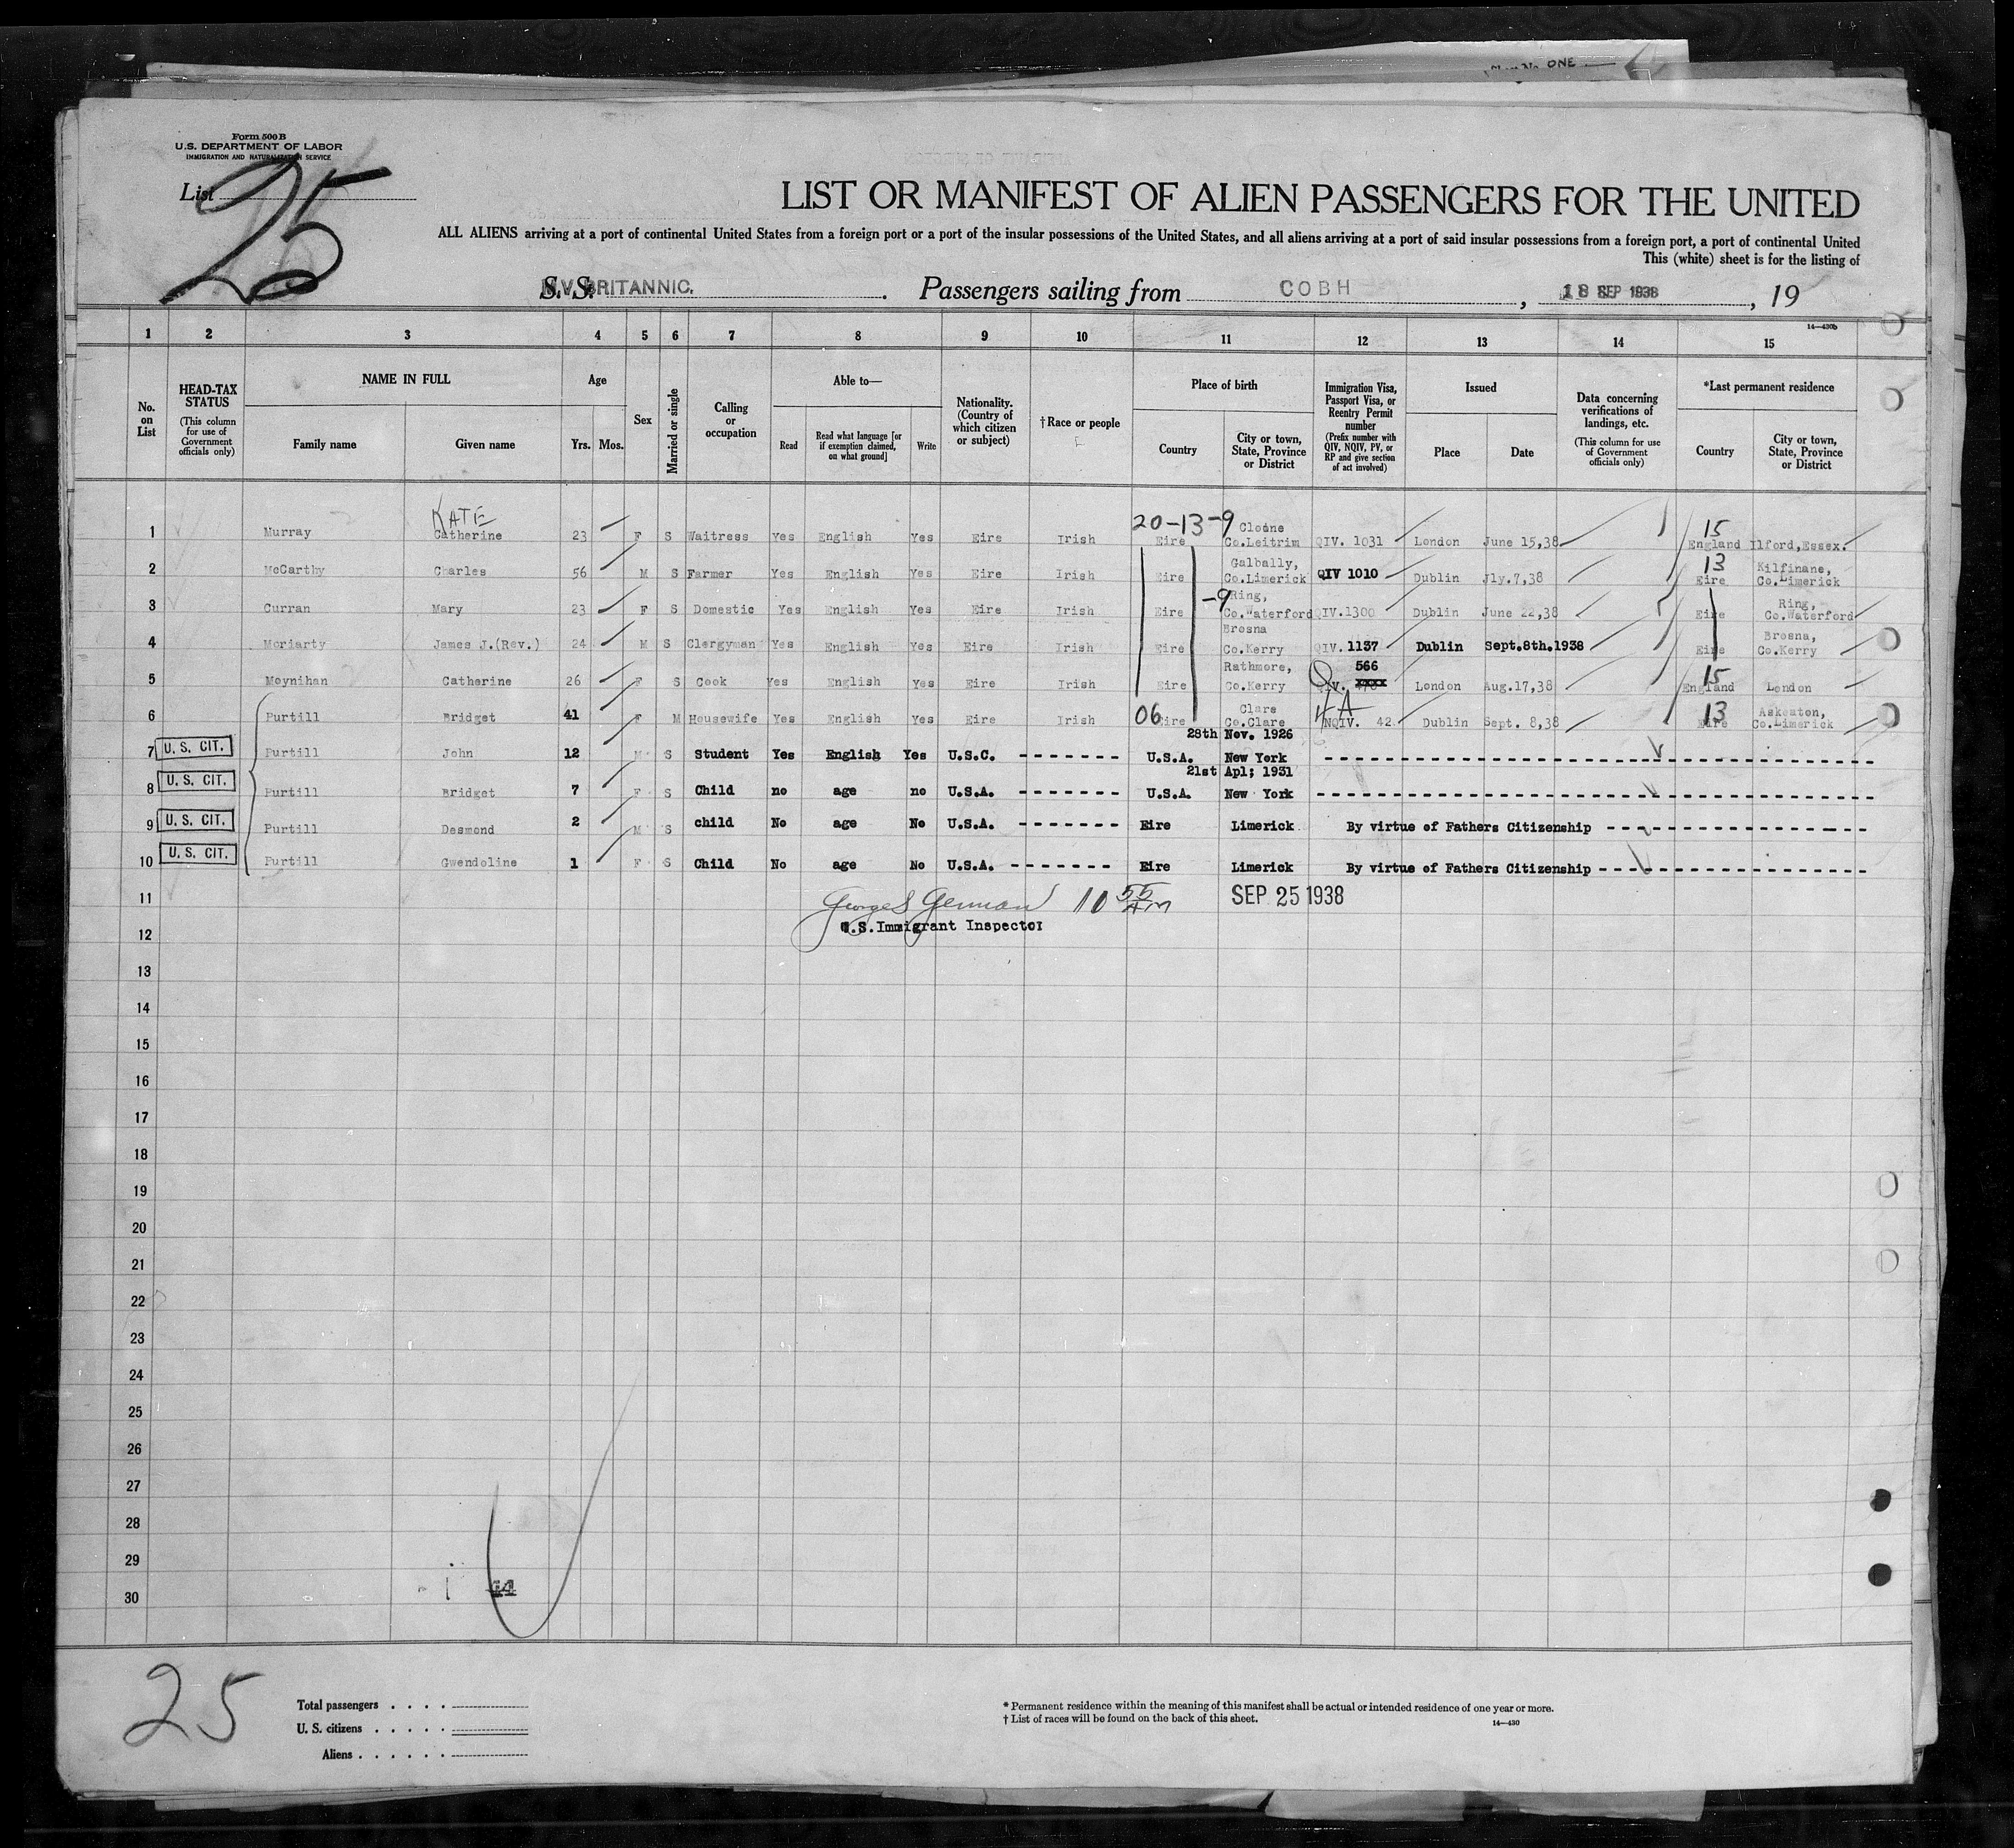 ONE
Form 500 B
U.S. DEPARTMENT OF LABOR
IMMIGRATION AND NATURALIZATION SERVICE
List 25
LIST OR MANIFEST OF ALIEN PASSENGERS FOR THE UNITED
ALL ALIENS arriving at a port of continental United States from a foreign port or a port of the insular possessions of the United States, and all aliens arriving at a port of said insular possessions from a foreign port, a port of continental United
This (white) sheet is for the listing of
S. S. M.V. BRITANNIC. Passengers sailing from COBH, 18 SEP 1938, 19
14—430b
1 2 3 4 5 6 7 8 9 10 11 12 13 14 15
No. on List
HEAD-TAX STATUS (This column for use of Government officials only)
NAME IN FULL
Family name Given name
Age
Yrs. Mos.
Sex
Married or single
Calling or occupation
Able to—
Read Read what language [or if exemption claimed, on what ground] Write
Nationality. (Country of which citizen or subject)
† Race or people
Place of birth
Country City or town, State, Province or District
Immigration Visa, Passport Visa, or Reentry Permit number (Prefix number with QIV, NQIV, PV, or RP and give section of act involved)
Issued
Place Date
Data concerning verifications of landings, etc. (This column for use of Government officials only)
*Last permanent residence
Country City or town, State, Province or District
KATE 20-13-9 15
1 Murray Catherine 23 F S Waitress Yes English Yes Eire Irish Eire Cloone Co.Leitrim QIV. 1031 London June 15,38 England Ilford,Essex.
13
2 McCarthy Charles 56 M S Farmer Yes English Yes Eire Irish Eire Galbally, Co.Limerick QIV 1010 Dublin Jly.7,38 Eire Kilfinane, Co.Limerick
-9
3 Curran Mary 23 F S Domestic Yes English Yes Eire Irish Eire Ring, Co.Waterford QIV.1300 Dublin June 22,38 Eire Ring, Co.Waterford
4 Moriarty James J.(Rev.) 24 M S Clergyman Yes English Yes Eire Irish Eire Brosna Co.Kerry QIV. 1137 Dublin Sept.8th.1938 Eire Brosna, Co.Kerry
566 15
5 Moynihan Catherine 26 F S Cook Yes English Yes Eire Irish Eire Rathmore, Co.Kerry QIV. London Aug.17,38 England London
06 4A 13
6 Purtill Bridget 41 F M Housewife Yes English Yes Eire Irish Eire Clare Co.Clare NQIV. 42. Dublin Sept. 8,38 Eire Askeaton, Co.Limerick
28th Nov. 1926
7 U. S. CIT. Purtill John 12 M S Student Yes English Yes U.S.C. - - - - - - - U.S.A. New York
21st Apl; 1931
8 U. S. CIT. Purtill Bridget 7 F S Child no age no U.S.A. - - - - - - - U.S.A. New York
9 U. S. CIT. Purtill Desmond 2 M S child No age No U.S.A. - - - - - - - Eire Limerick By virtue of Fathers Citizenship
10 U. S. CIT. Purtill Gwendoline 1 F S Child No age No U.S.A. - - - - - - - Eire Limerick By virtue of Fathers Citizenship
11 George S German 10 55 AM SEP 25 1938
U.S.Immigrant Inspector
12
13
14
15
16
17
18
19
20
21
22
23
24
25
26
27
28
29
30
25
Total passengers . . . .
U. S. citizens . . . . .
Aliens . . . . . .
* Permanent residence within the meaning of this manifest shall be actual or intended residence of one year or more.
† List of races will be found on the back of this sheet.
14—430